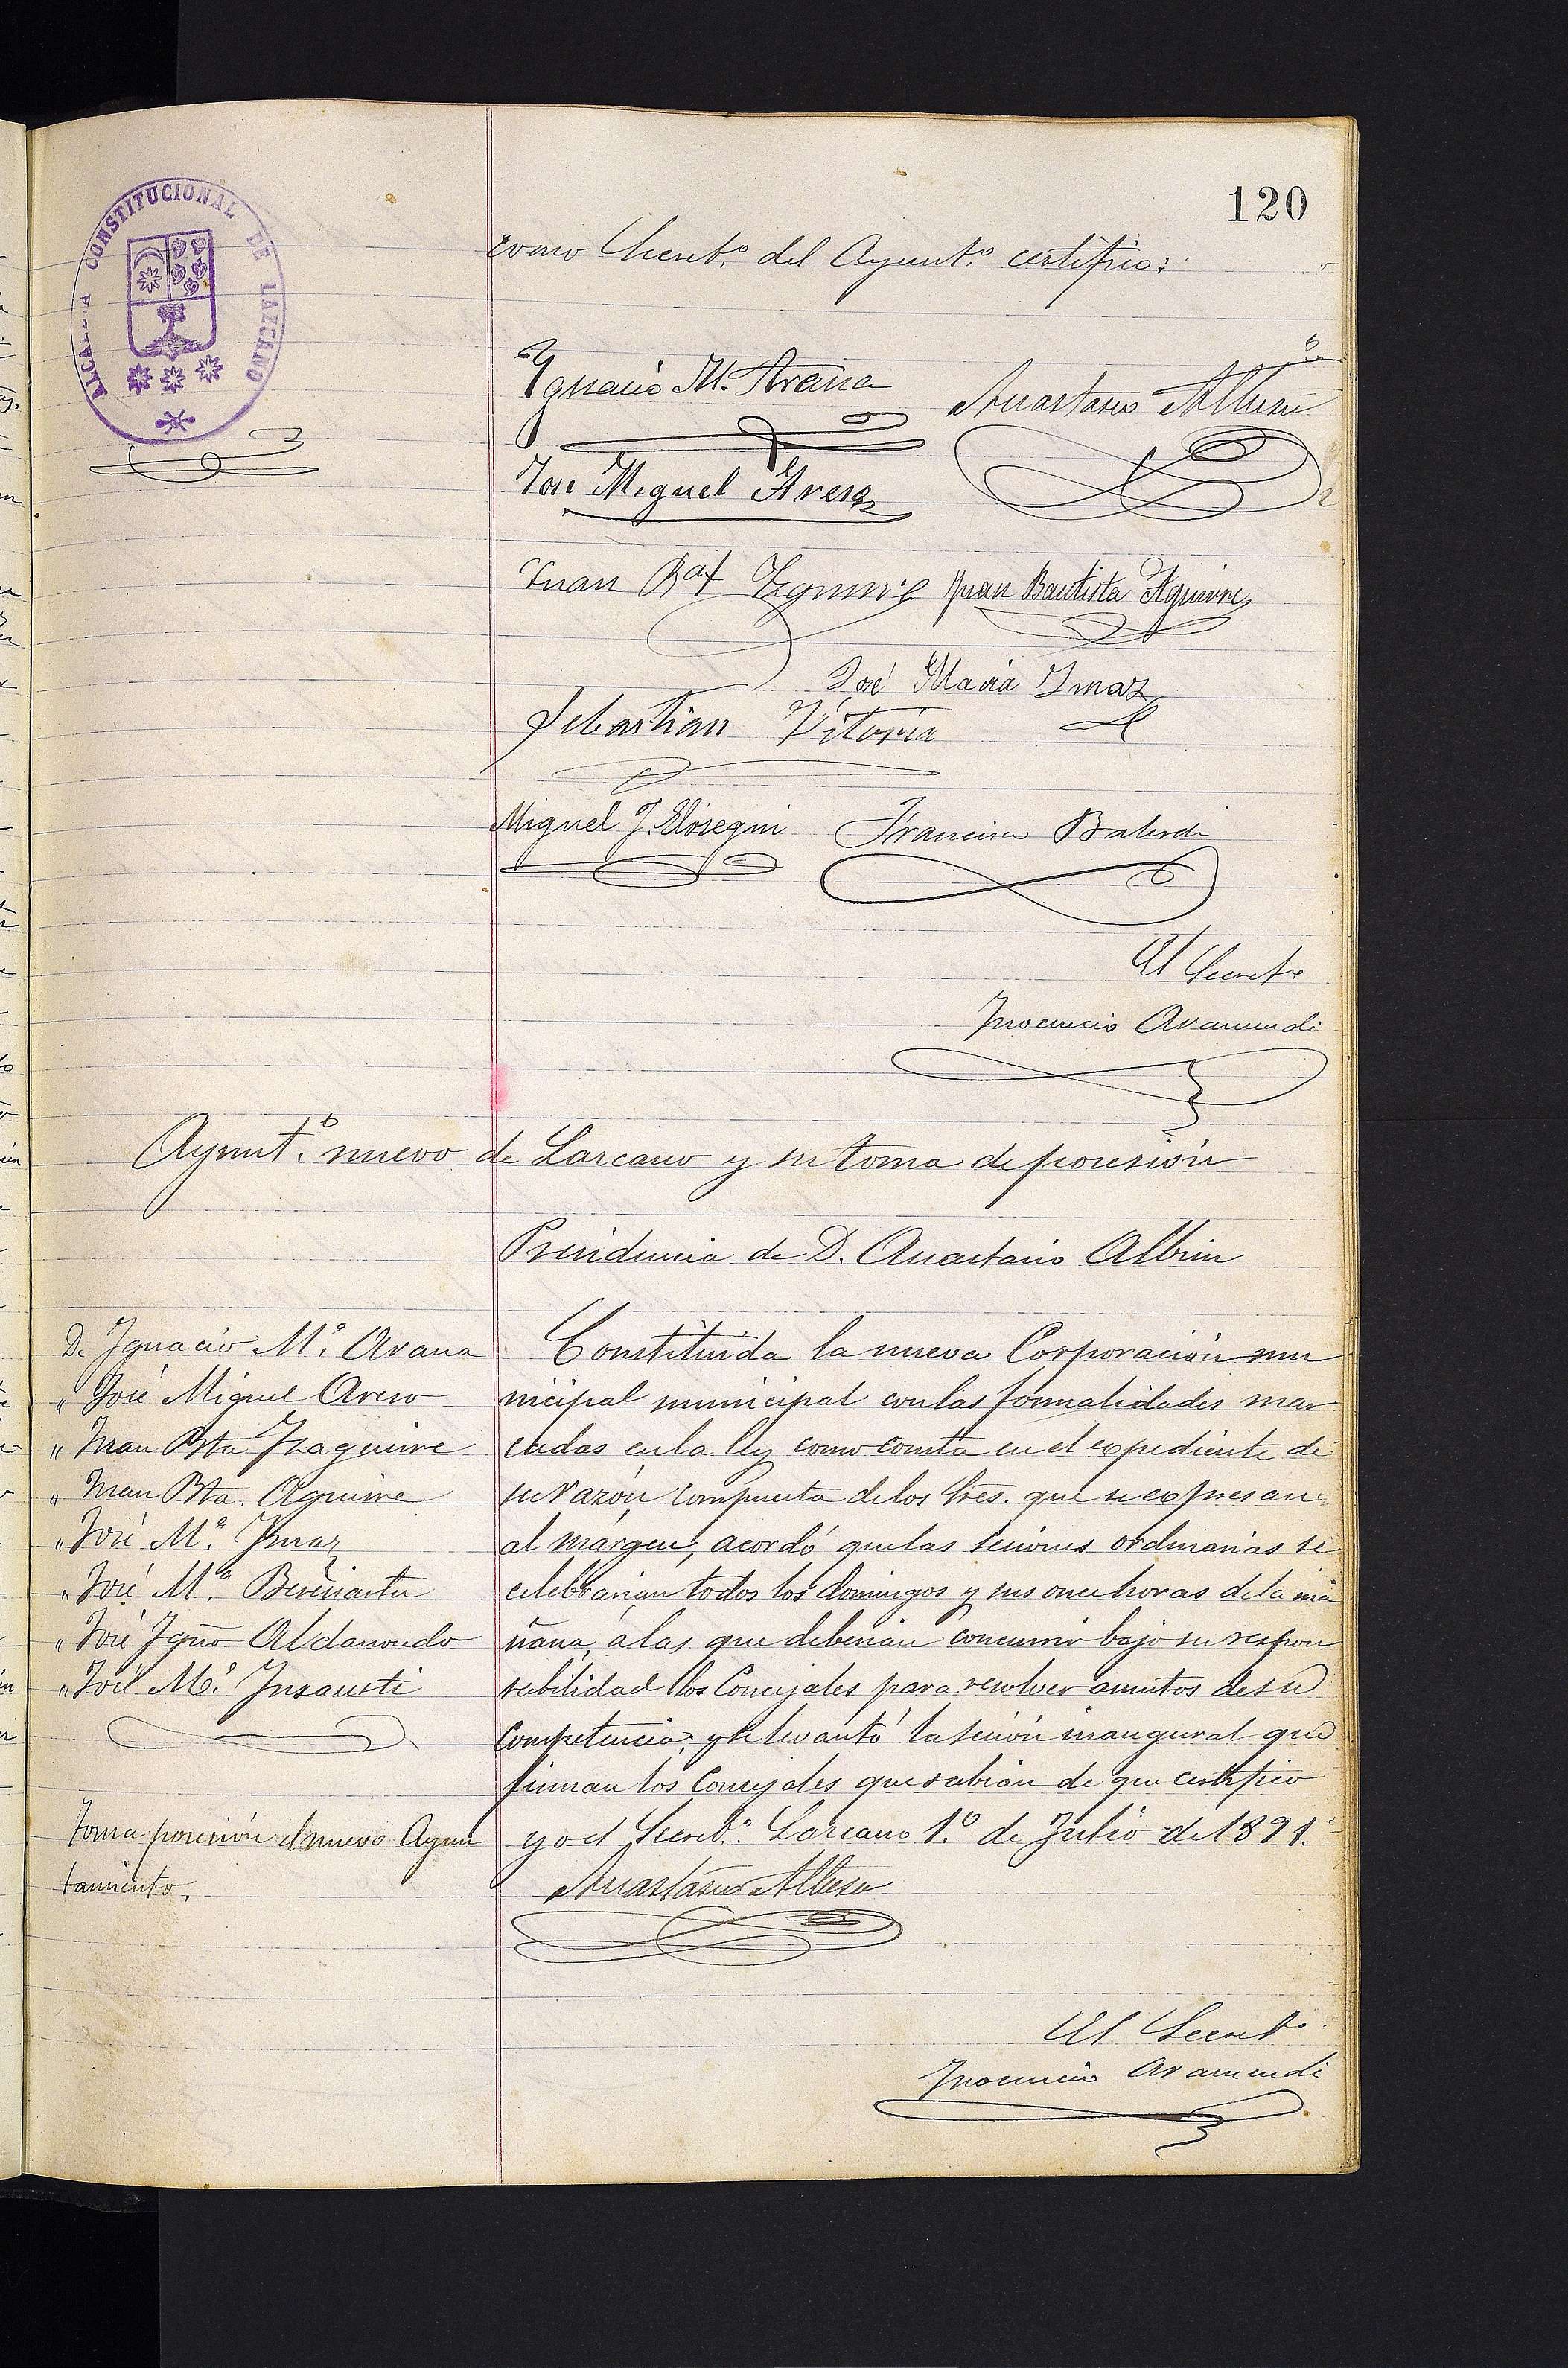 120
ALCALDIA CONSTITUCIONAL DE LAZCANO
como Secret.º del Ayunt.º certifico:
Ygnacio M. Arana
Anastasio Albisu
José Miguel
Juan Bat
Juan Bautista Aguirre
José Maria Imaz
Sebastian Vitoria
Miguel J. Elosegui
Francisco Balerdi
El Secret.º
Inocencio Aramendi
Ayunt.º nuevo de Lazcano y su toma de posesión
Presidencia de D. Anastasio Albisu
D. Ignacio M.ª Arana
" José Miguel
" Juan Bta Izaguirre
" Juan Bta. Aguirre
" José M.ª Imaz
" José M.ª Beriniartu
" José Igno Aldanondo
" José M.ª Insausti
Toma posesión el nuevo Ayun
tamiento.
Constituida la nueva Corporación mu
nicipal municipal con las formalidades mar
cadas en la ley como consta en el expediente de
su razón, compuesta de los Sres. que se expresan
al márgen, acordó que las sesiones ordinarias se
celebrarían todos los domingos y sus once horas de la ma
ñana, á las que deberian concurrir bajo su respon
sabilidad los Concejales para resolver asuntos de su
competencia; y se levantó la sesión inaugural que
firman los Concejales que sabian de que certifico
yo el Secret.º Lazcano 1.º de Julio de 1891.
Anastasio Albisu
El Secret.º
Inocencio Aramendi